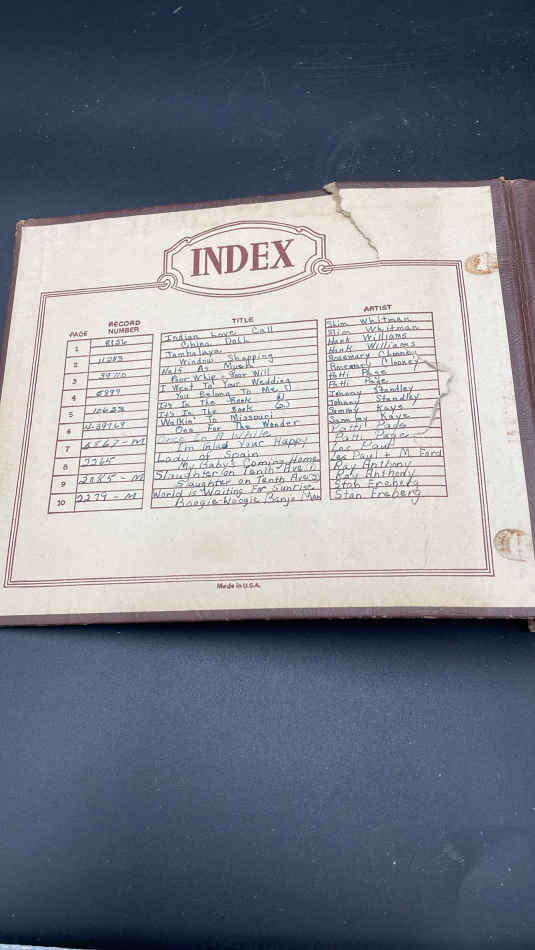 INDEX
PAGE RECORD NUMBER TITLE ARTIST
1 8156 Indian Love Call Slim Whitman
China Doll Slim Whitman
2 11283 Jambalaya Hank Williams
Window Shopping Hank Williams
3 39710 Half As Much Rosemary Clooney
Poor Whip-Poor Will Rosemary Clooney
4 I Went To Your Wedding Patti Page
You Belong To Me Patti Page
5 It's In The Book 1) Johnny Standley
It's In The Book 2) Johnny Standley
6 Walkin' To Missouri Sammy Kaye
One For The Wonder Sammy Kaye
7 6867-M Once In A While Patti Page
I'm Glad Your Happy Patti Page
8 2265 Lady of Spain Les Paul
My Baby's Coming Home Les Paul + M. Ford
9 2085-M Slaughter on Tenth Ave 1) Ray Anthony
Slaughter on Tenth Ave 2) Ray Anthony
10 2279-M World is Waiting For Sunrise Stan Freberg
Boogie-Woogie Banjo Man Stan Freberg
Made in U.S.A.